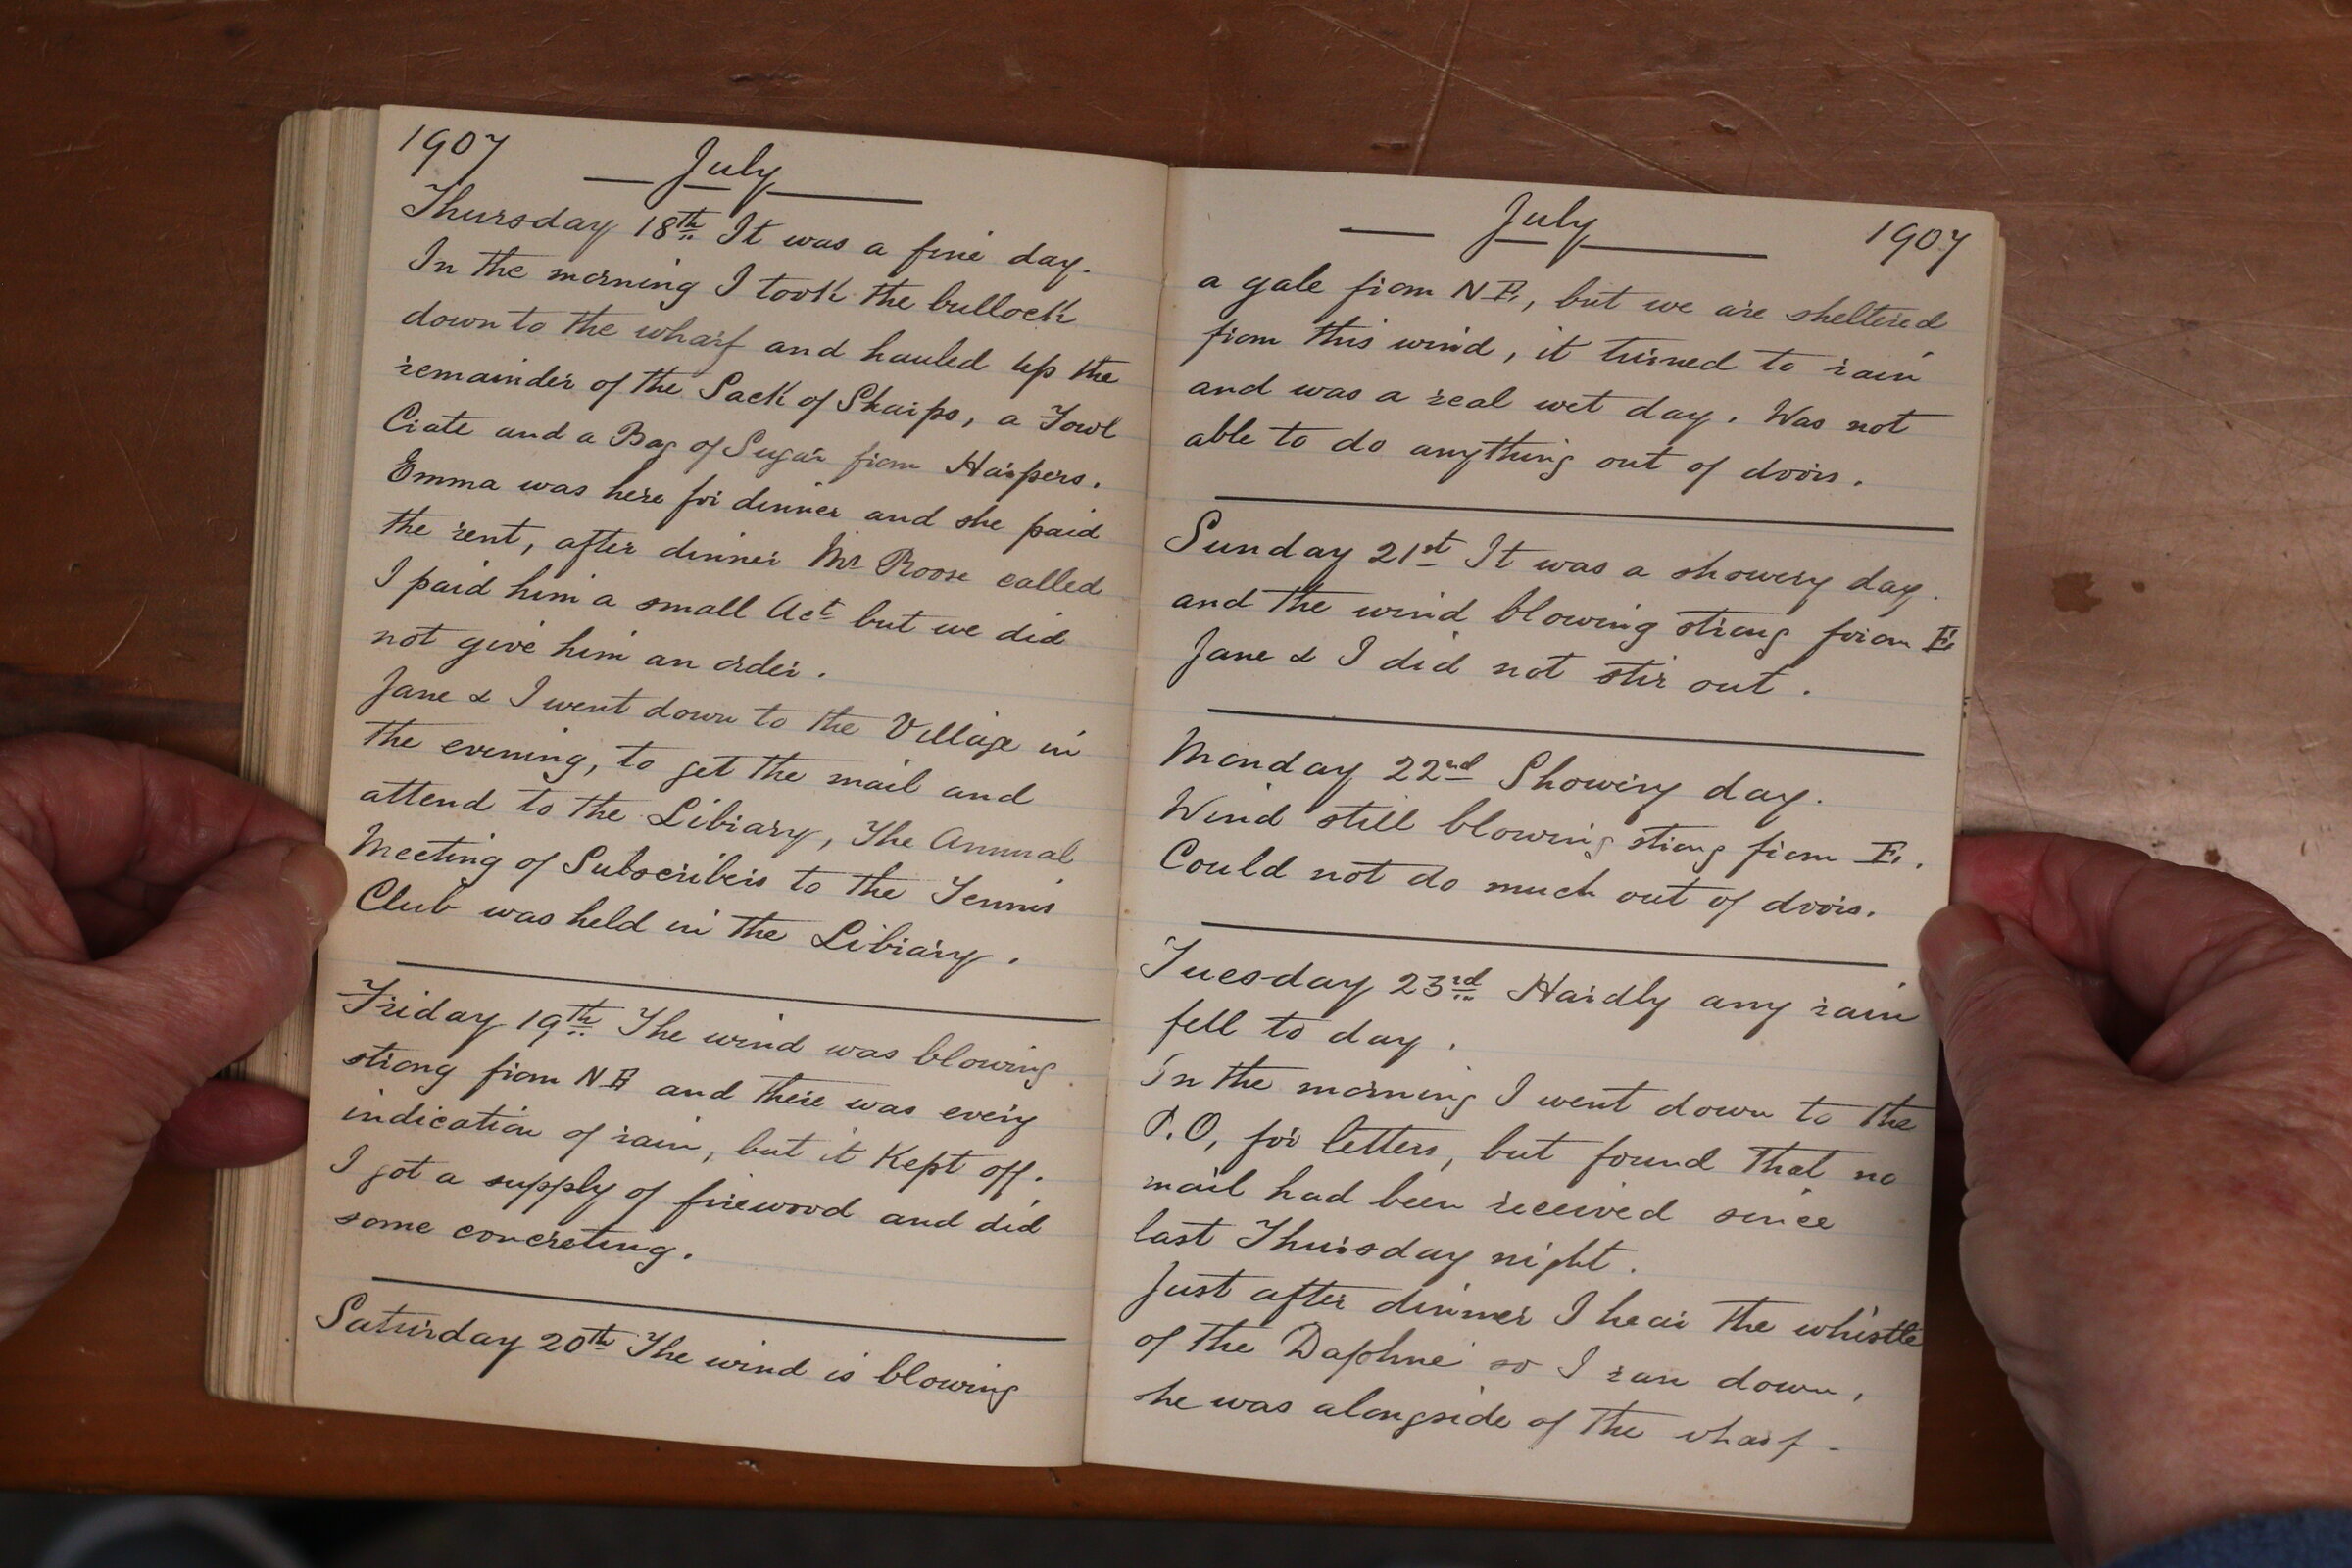 1907
July
Thursday 18th It was a fine day.
In the morning I took the bullock
down to the wharf and hauled up the
remainder of the Sack of Sharps, a Fowl
Crate and a Bag of Sugar from Harpers.
Emma was here for dinner and she paid
the rent, after dinner Mr Roose called
I paid him a small Act but we did
not give him an order.
Jane & I went down to the Village in
the evening, to get the mail and
attend to the Library, The Annual
Meeting of Subscribers to the Tennis
Club was held in the Library.
Friday 19th The wind was blowing
strong from NE and there was every
indication of rain, but it Kept off.
I got a supply of firewood and did
some concreting.
Saturday 20th The wind is blowing
July 1907
a gale from NE, but we are sheltered
from this wind, it turned to rain
and was a real wet day. Was not
able to do anything out of doors.
Sunday 21st It was a showery day.
and the wind blowing strong from E
Jane & I did not stir out.
Monday 22nd Showery day.
Wind still blowing strong from E.
Could not do much out of doors.
Tuesday 23rd Hardly any rain
fell to day.
In the morning I went down to the
P.O, for letters, but found that no
mail had been received since
last Thursday night.
Just after dinner I hear the whistle
of the Daphne so I ran down,
she was alongside of the wharf-